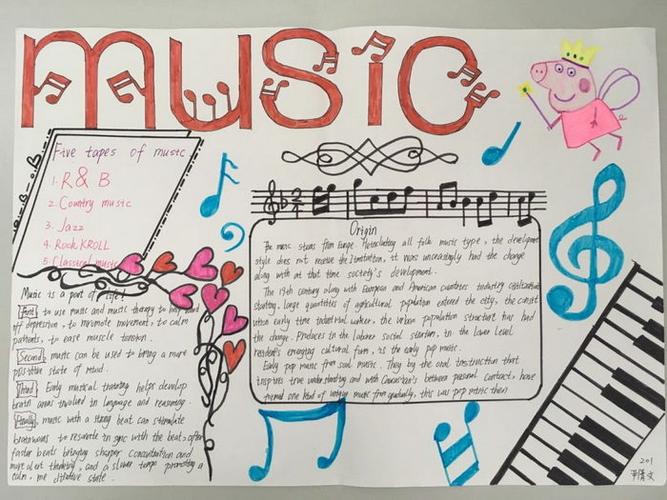 music
Five tapes of music
1. R&B
2. Country music
3. Jazz
4. Rock KROLL
5. Classical music
Music is a part of life!
First to use music and music therapy to help
off depression, to promote movement, to calm
patients, to ease muscle tension.
Second music can be used to bring a more
positive state of mind.
Third Early musical training helps develop
brain areas involved in language and reasoning.
music with a strong beat can stimulate
brainwaves to resonate in sync with the beat, after
faster beats bringing sharper concentration and
more alert thinking, and a slower tempo promoting a
calm, meditative state.
Origin
The music stems from Europe all folk music type, the development
style does not receive the limitation, it was unceasingly had the change
along with at that time society's development.
The 19th century along with European and American countries industry civilization
starting, large quantities of agricultural population entered the city, the
early time industrial worker, the urban population structure has had
the change. Produces in the labour social stratum, in the lower level
resident's emerging cultural form, is the early pop music.
Early pop music from soul music. They by the oral instruction that
inspires true understanding and with between personal contact, have
formed one kind of unique music form gradually, this was pop music then
201